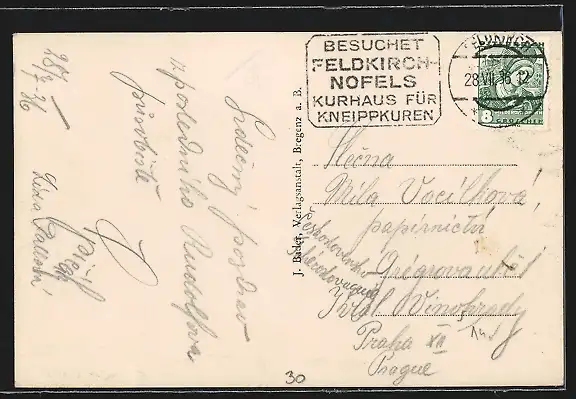 28/7 36
Srdečný pozdrav
z posledního Rudolfova
působiště
Lida
J. Bader, Verlagsanstalt, Bregenz a. B.
BESUCHET
FELDKIRCH-
NOFELS
KURHAUS FÜR
KNEIPPKUREN
FELDKIRCH
28 VII 36 12
8 GROSCHEN
Slečna
Míla Vocílková,
papírnictví
Král. Vinohrady
Praha XII
Prague
30